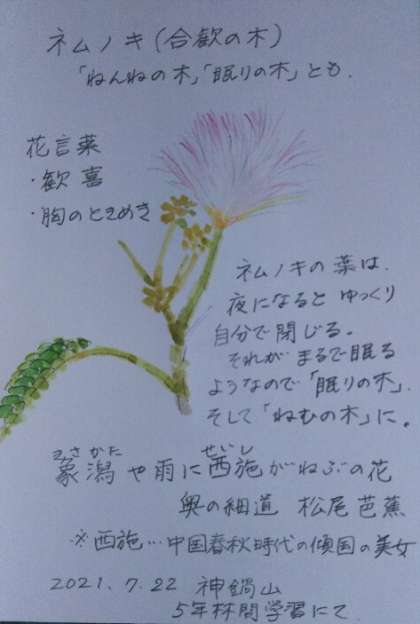 ネムノキ(合歓の木)
「ねんねの木」「眠りの木」とも.
花言葉
・歓喜
・胸のときめき
ネムノキの葉は、
夜になると ゆっくり
自分で閉じる。
それが まるで眠る
ようなので「眠りの木」.
そして「ねむの木」に。
きさかた せいし
象潟や雨に西施がねぶの花
奥の細道 松尾芭蕉
※西施…中国春秋時代の傾国の美女
2021.7.22 神鍋山
5年林間学習にて